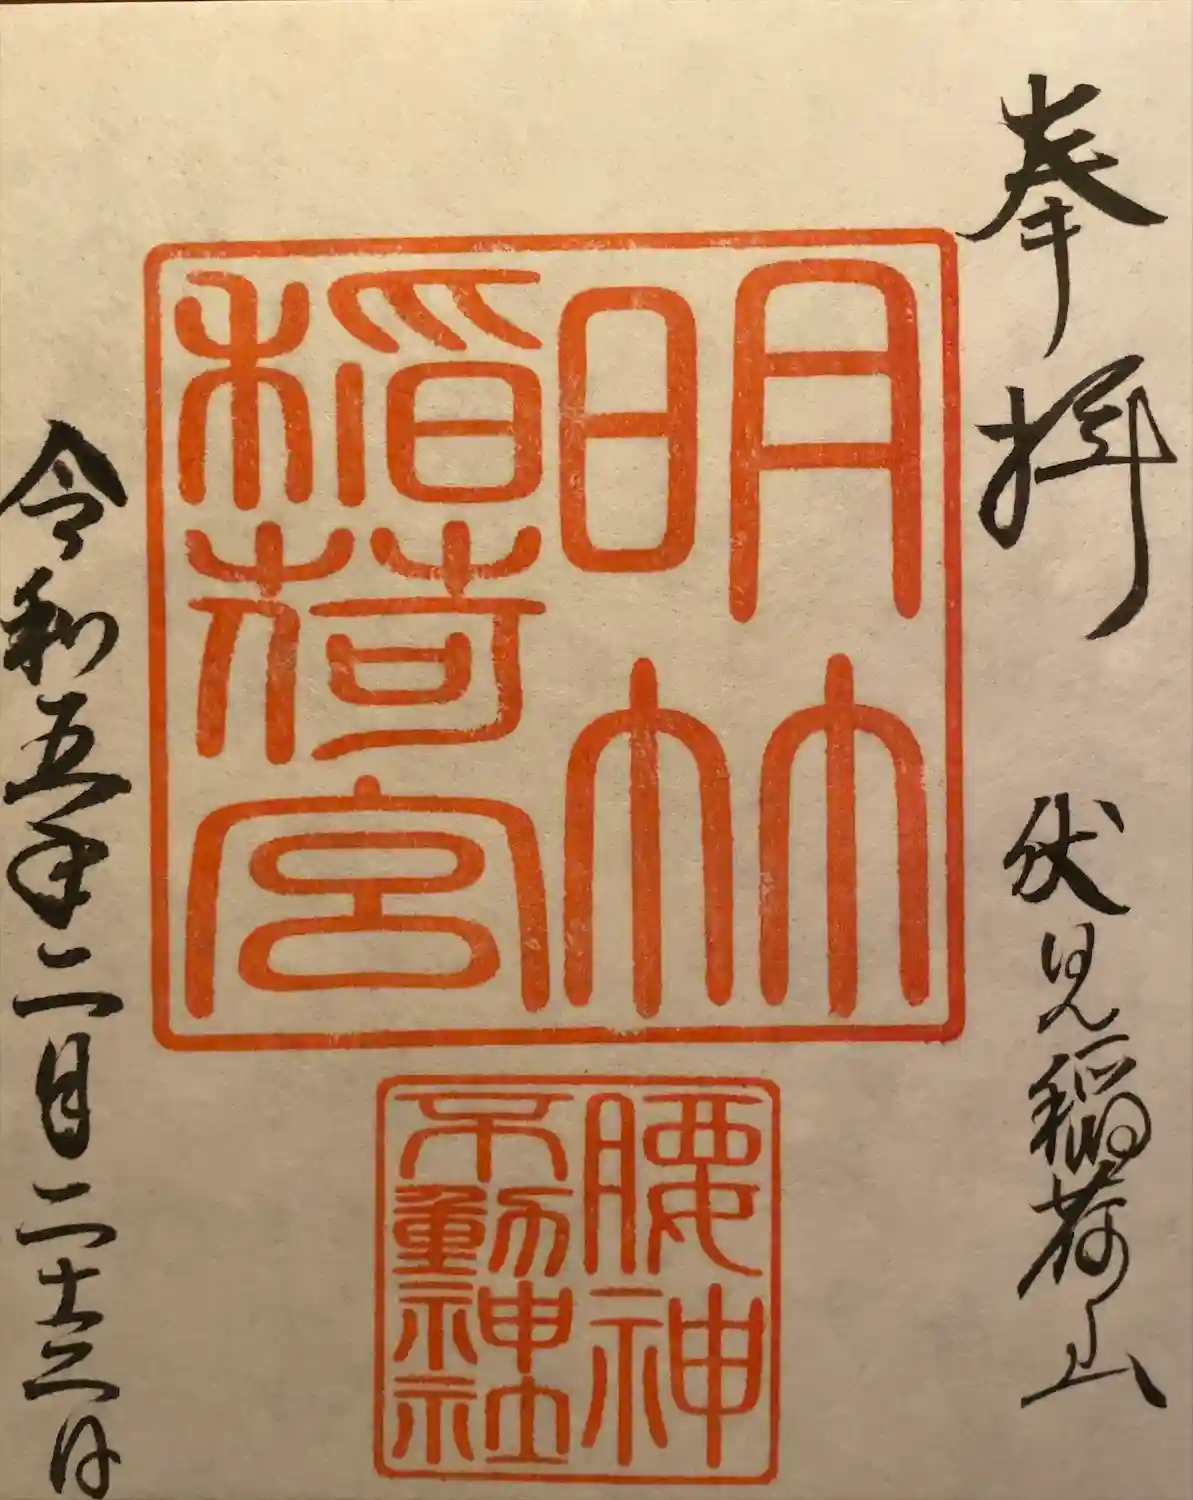 奉拝 伏見稲荷山
明竹
稲荷宮
腰神
不動神社
令和五年二月二十三日